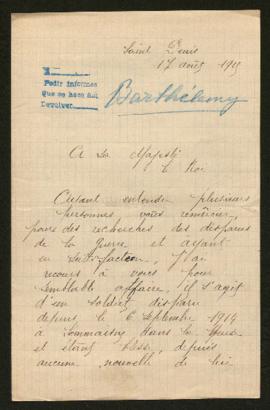 Saint Denis
17 août 1915
Pedir informes
que se hace así
Devolver
Barthélemy
A Sa Majesté
le Roi
Ayant entendu plusieurs
personnes vous remercier,
pour des recherches des disparus
de la guerre, et ayant
eu satisfaction, j'ai
recours à vous pour
semblable affaire, il s'agit
d'un soldat disparu
depuis le 6 septembre 1914
à Sommaisne dans la Meuse
et étant blessé, depuis
aucune nouvelle de lui